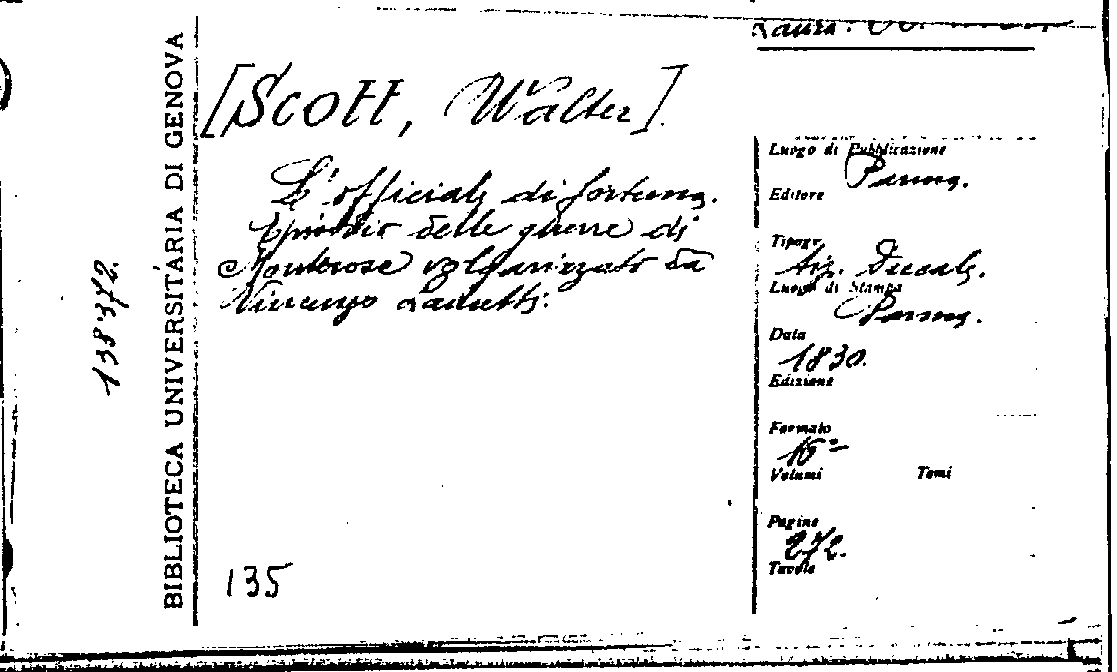 BIBLIOTECA UNIVERSITARIA DI GENOVA
138372.
[Scott, Walter].
L'officiale di fortuna.
Episodio delle guerre di
Montrose volgarizzato da
Vincenzo
135
Luogo di Pubblicazione
Parma.
Editore
Tipogr.
Tip. Ducale.
Luogo di Stampa
Parma.
Data
1830.
Edizione
Formato
16°
Volumi Tomi
Pagine
272.
Tavole